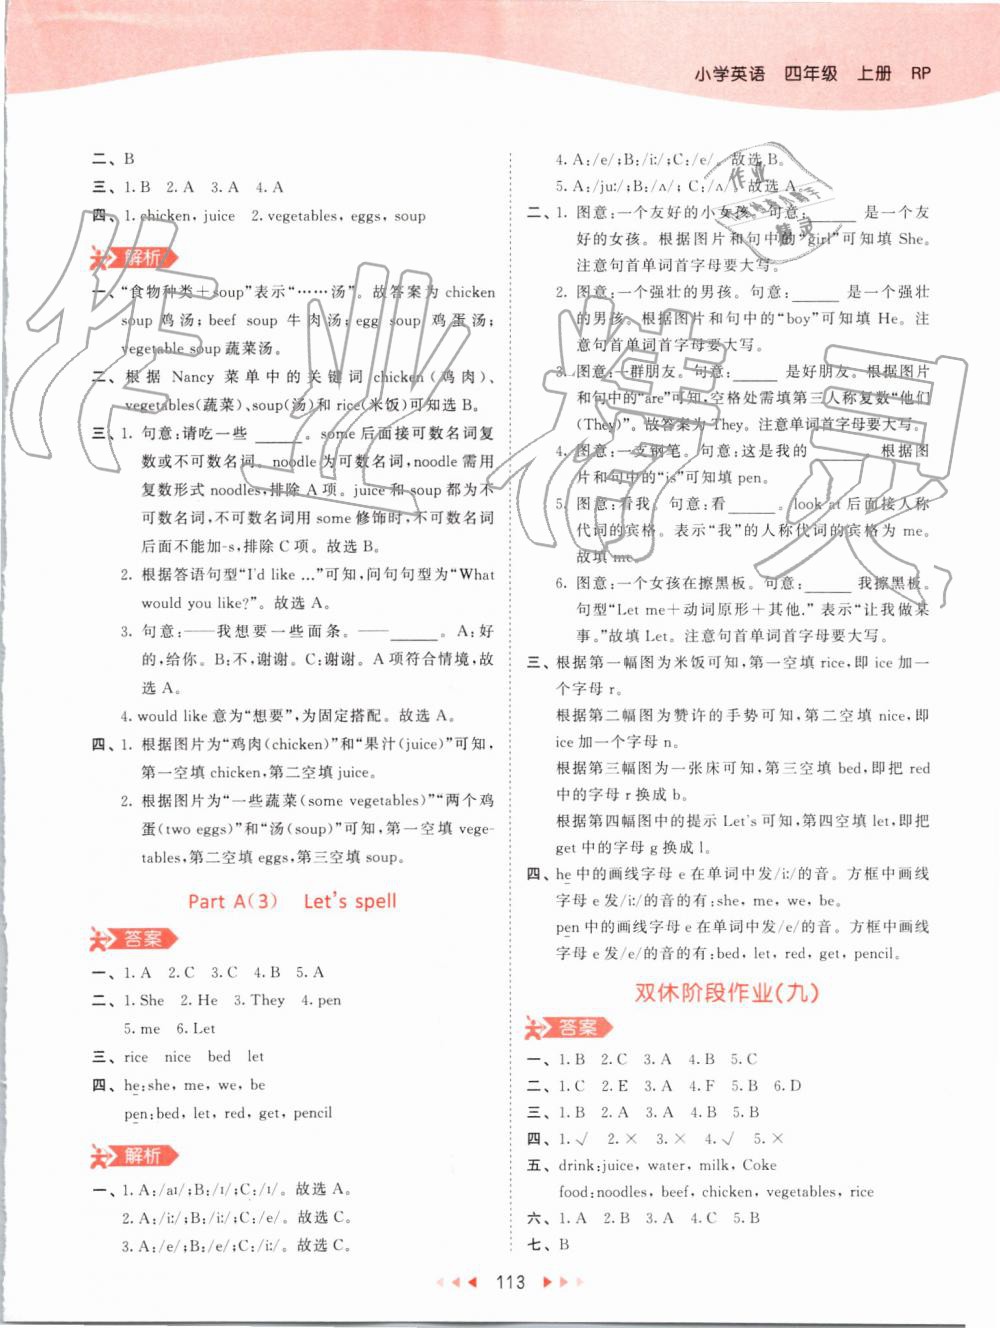 小学英语 四年级 上册 RP
二、B
三、1. B 2. A 3. A 4. A
四、1. chicken, juice 2. vegetables, eggs, soup
解析
一、“食物种类＋soup”表示“……汤”。故答案为 chicken
soup 鸡汤; beef soup 牛肉汤; egg soup 鸡蛋汤;
vegetable soup 蔬菜汤。
二、根据 Nancy 菜单中的关键词 chicken(鸡肉)、
vegetables(蔬菜)、soup(汤)和 rice(米饭)可知选 B。
三、1. 句意:请吃一些 ______ 。some 后面接可数名词复
数或不可数名词。noodle 为可数名词,noodle 需用
复数形式 noodles,排除 A 项。juice 和 soup 都为不
可数名词,不可数名词用 some 修饰时,不可数名词
后面不能加-s,排除 C 项。故选 B。
2. 根据答语句型“I'd like …”可知,问句句型为“What
would you like?”。故选 A。
3. 句意:——我想要一些面条。——______ 。A:好
的,给你。B:不,谢谢。C:谢谢。A 项符合情境,故
选 A。
4. would like 意为“想要”,为固定搭配。故选 A。
四、1. 根据图片为“鸡肉(chicken)”和“果汁(juice)”可知,
第一空填 chicken,第二空填 juice。
2. 根据图片为“一些蔬菜(some vegetables)”“两个鸡
蛋(two eggs)”和“汤(soup)”可知,第一空填 vege-
tables,第二空填 eggs,第三空填 soup。
Part A(3) Let's spell
答案
一、1. A 2. C 3. C 4. B 5. A
二、1. She 2. He 3. They 4. pen
5. me 6. Let
三、rice nice bed let
四、he:she, me, we, be
pen:bed, let, red, get, pencil
解析
一、1. A:/aɪ/;B:/ɪ/;C:/ɪ/。故选 A。
2. A:/iː/;B:/iː/;C:/e/。故选 C。
3. A:/e/;B:/e/;C:/iː/。故选 C。
4. A:/e/;B:/iː/;C:/e/。故选 B。
5. A:/juː/;B:/ʌ/;C:/ʌ/。故选 A。
二、1. 图意:一个友好的小女孩。句意:______ 是一个友
好的女孩。根据图片和句中的“girl”可知填 She。
注意句首单词首字母要大写。
2. 图意:一个强壮的男孩。句意:______ 是一个强壮
的男孩。根据图片和句中的“boy”可知填 He。注
意句首单词首字母要大写。
3. 图意:一群朋友。句意:______ 是好朋友。根据图片
和句中的“are”可知,空格处需填第三人称复数“他们
(They)”。故答案为 They。注意首字母要大写。
4. 图意:一支钢笔。句意:这是我的 ______ 。根据图
片和句中的“is”可知填 pen。
5. 图意:看我。句意:看 ______ 。look at 后面接人称
代词的宾格。表示“我”的人称代词的宾格为 me。
故填 me。
6. 图意:一个女孩在擦黑板。句意:______ 我擦黑板。
句型“Let me＋动词原形＋其他.”表示“让我做某
事。”故填 Let。注意句首单词首字母要大写。
三、根据第一幅图为米饭可知,第一空填 rice,即 ice 加一
个字母 r。
根据第二幅图为赞许的手势可知,第二空填 nice,即
ice 加一个字母 n。
根据第三幅图为一张床可知,第三空填 bed,即把 red
中的字母 r 换成 b。
根据第四幅图中的提示 Let's 可知,第四空填 let,即把
get 中的字母 g 换成 l。
四、he 中的画线字母 e 在单词中发/iː/的音。方框中画线
字母 e 发/iː/的音的有:she, me, we, be。
pen 中的画线字母 e 在单词中发/e/的音。方框中画线
字母 e 发/e/的音的有:bed, let, red, get, pencil。
双休阶段作业(九)
答案
一、1. B 2. C 3. A 4. B 5. C
二、1. C 2. E 3. A 4. F 5. B 6. D
三、1. B 2. A 3. A 4. B 5. B
四、1. √ 2. × 3. × 4. √ 5. ×
五、drink:juice, water, milk, Coke
food:noodles, beef, chicken, vegetables, rice
六、1. A 2. B 3. A 4. C 5. C
七、B
113
作业精灵